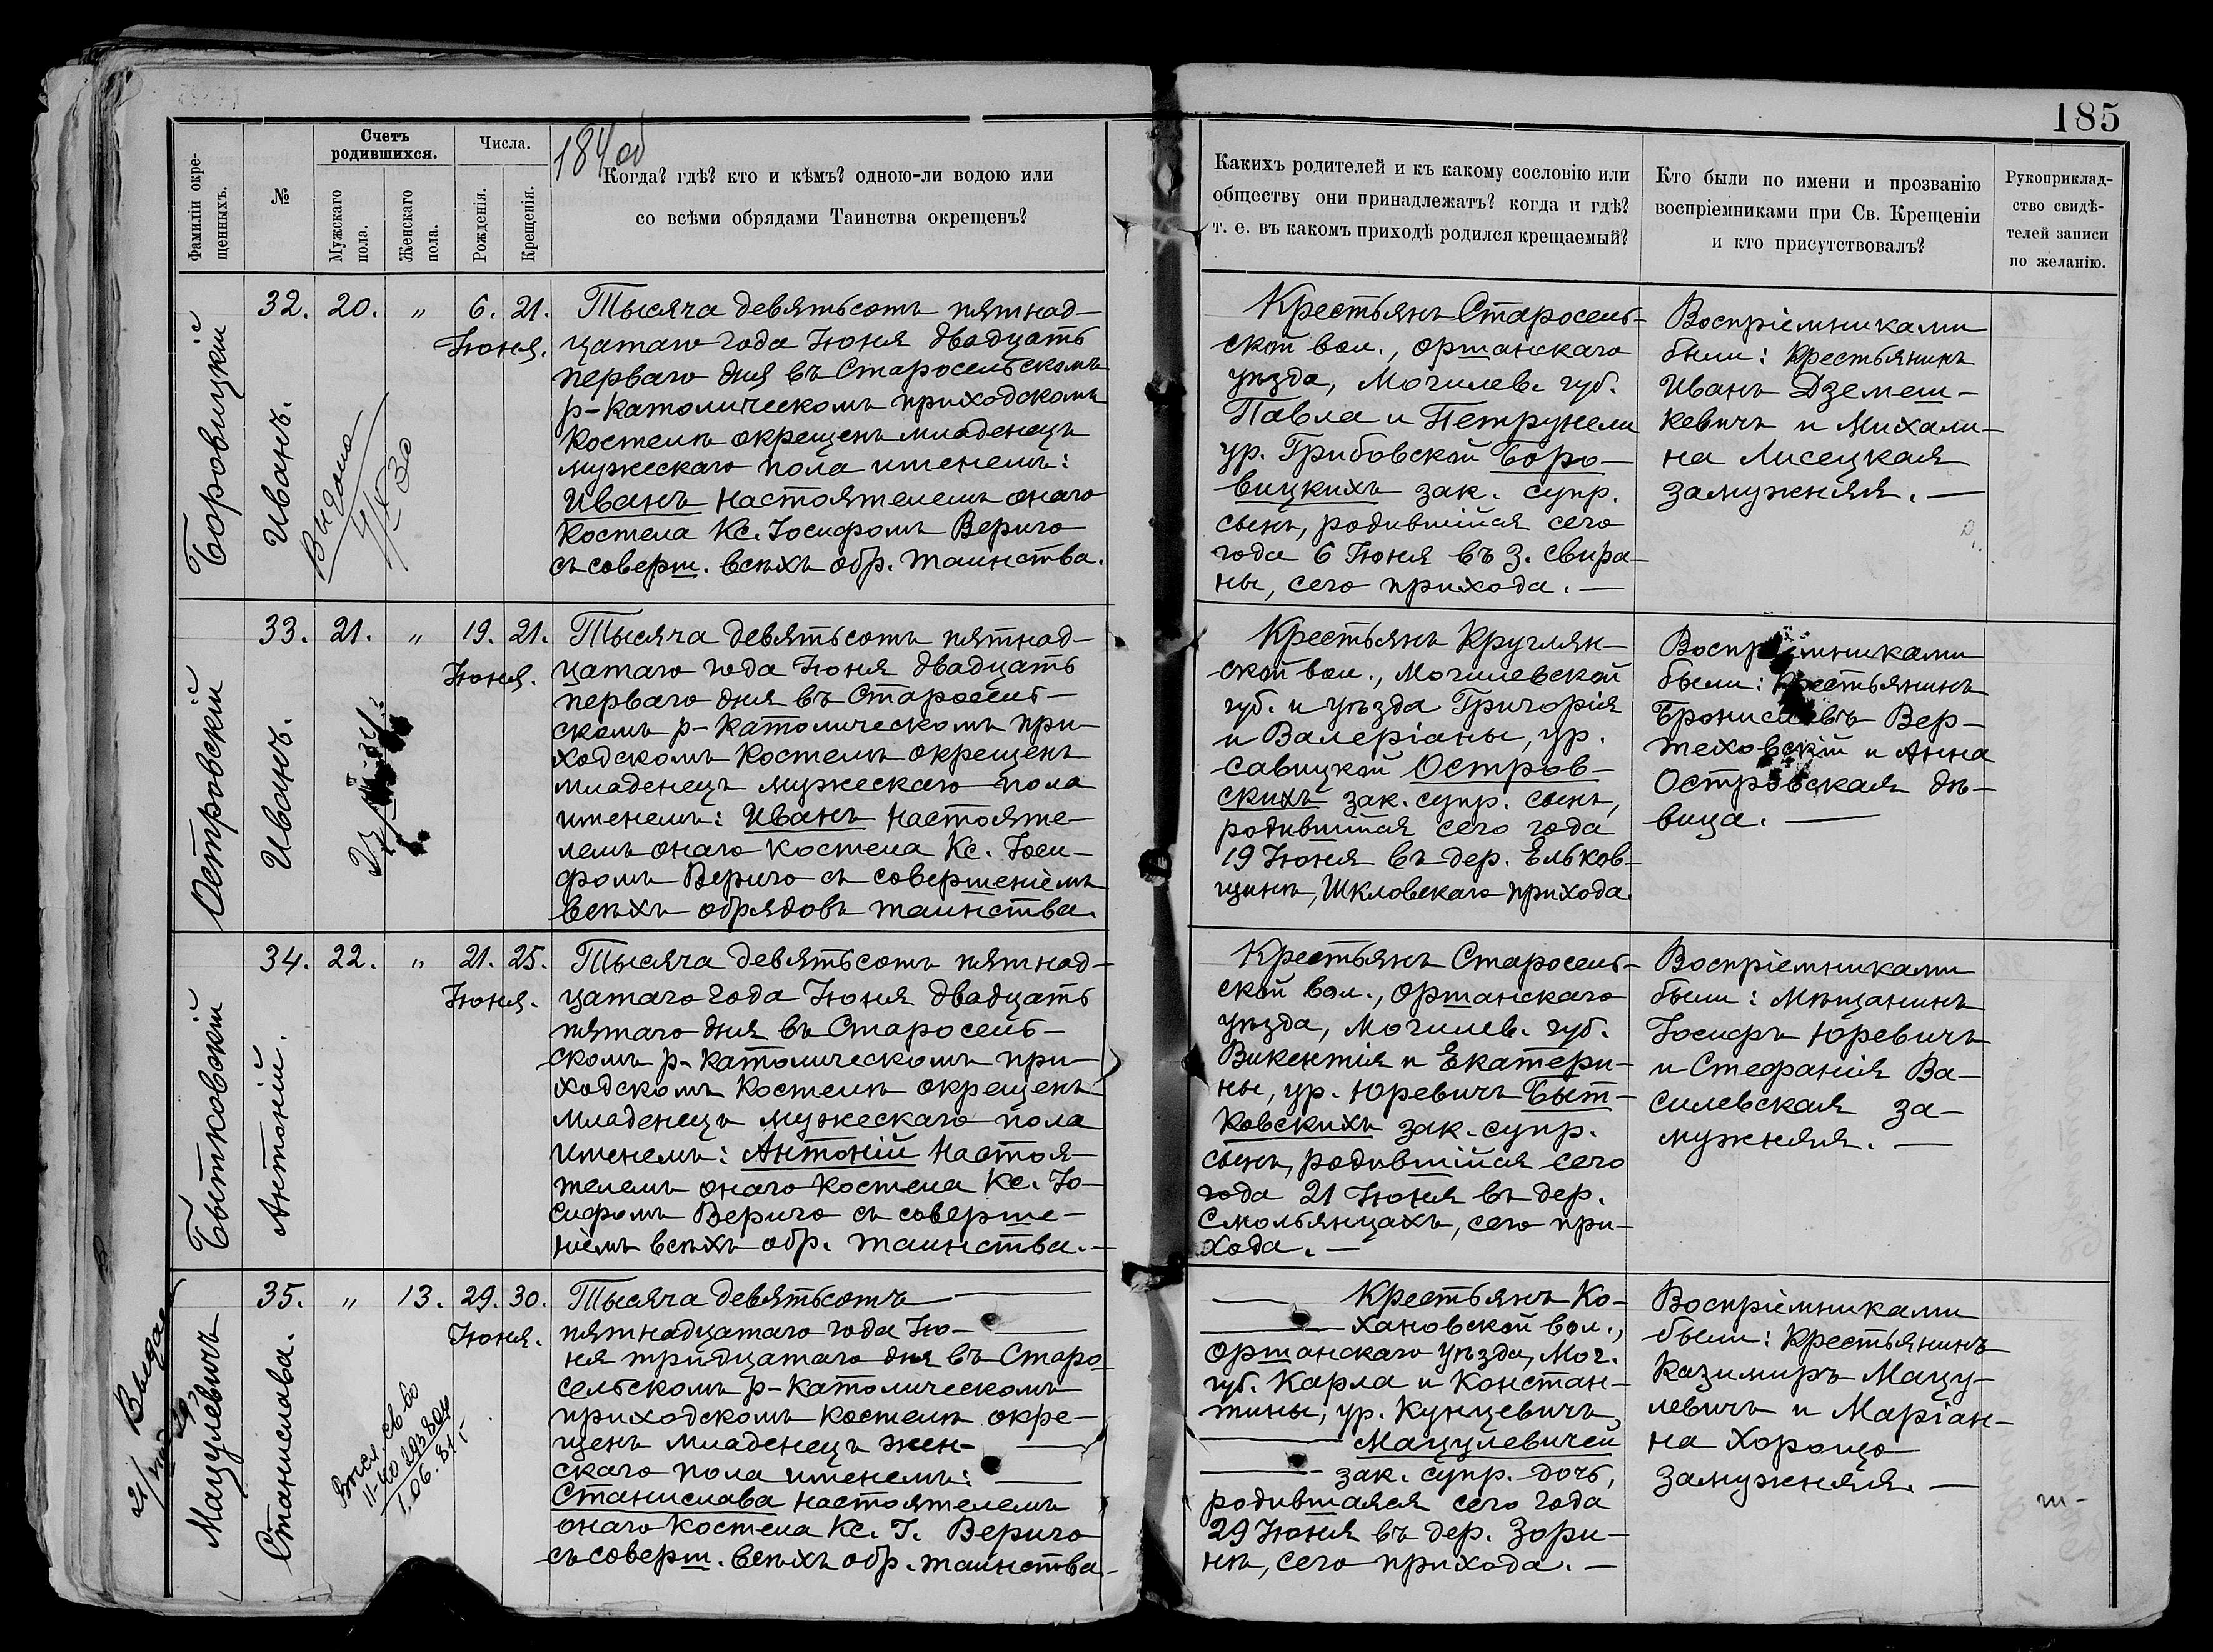 185
184 об
Фамиліи окре-
щенныхъ.
№
Счетъ
родившихся.
Мужскаго
пола.
Женскаго
пола.
Числа.
Рожденія.
Крещенія.
Когда? гдѣ? кто и кѣмъ? одною-ли водою или
со всѣми обрядами Таинства окрещенъ?
Какихъ родителей и къ какому сословію или
обществу они принадлежатъ? когда и гдѣ?
т. е. въ какомъ приходѣ родился крещаемый?
Кто были по имени и прозванію
воспріемниками при Св. Крещеніи
и кто присутствовалъ?
Рукоприклад-
ство свидѣ-
телей записи
по желанію.
Боровицкій
32.
Иванъ.
Выдано
20.
„
6. 21.
Іюня.
Тысяча девятьсотъ пятнад-
цатаго года Іюня двадцать
перваго дня въ Старосельскомъ
р-католическомъ приходскомъ
костелѣ окрещенъ младенецъ
мужескаго пола именемъ:
Иванъ настоятелемъ онаго
костела Кс. Іосифомъ Верыго
съ соверш. всѣхъ обр. таинства.
Крестьянъ Старосель-
ской вол., оршанскаго
уѣзда, Могилев. губ.
Павла и Петрунели
ур. Грибовской Боро-
вицкихъ зак. супр.
сынъ, родившійся сего
года 6 Іюня въ з. Свира-
ны, сего прихода. —
Воспріемниками
были: Крестьянинъ
Иванъ Дземеш-
кевичъ и Михали-
на Лисецкая
замужняя. —
Островскій
33.
Иванъ.
21.
„
19. 21.
Іюня.
Тысяча девятьсотъ пятнад-
цатаго года Іюня двадцать
перваго дня въ Старосель-
скомъ р-католическомъ при-
ходскомъ костелѣ окрещенъ
младенецъ мужескаго пола
именемъ: Иванъ настояте-
лемъ онаго костела Кс. Іоси-
фомъ Верыго съ совершеніемъ
всѣхъ обрядовъ таинства.
Крестьянъ Круглян-
ской вол., Могилевской
губ. и уѣзда Григорія
и Валеріаны, ур.
Савицкой Остров-
скихъ зак. супр. сынъ,
родившійся сего года
19 Іюня въ дер. Ельков-
щинѣ, Шкловскаго прихода.
Воспріемниками
были: Крестьянинъ
Брониславъ Вер-
теховскій и Анна
Островская дѣ-
вица. —
Бытковскій
34.
Антоній.
22.
„
21. 25.
Іюня.
Тысяча девятьсотъ пятнад-
цатаго года Іюня двадцать
пятаго дня въ Старосель-
скомъ р-католическомъ при-
ходскомъ костелѣ окрещенъ
младенецъ мужескаго пола
именемъ: Антоній настоя-
телемъ онаго костела Кс. Іо-
сифомъ Верыго съ соверше-
ніемъ всѣхъ обр. таинства. —
Крестьянъ Старосель-
ской вол., Оршанскаго
уѣзда, Могилев. губ.
Викентія и Екатери-
ны, ур. Юревичъ Быт-
ковскихъ зак. супр.
сынъ, родившійся сего
года 21 Іюня въ дер.
Смольянцахъ, сего при-
хода. —
Воспріемниками
были: Мѣщанинъ
Іосифъ Юревичъ
и Стефанія Ва-
силевская за-
мужняя. —
Мацулевичъ
35.
Станислава.
„
13.
29. 30.
Іюня.
Тысяча девятьсотъ —
пятнадцатаго года Ію- —
ня тридцатаго дня въ Старо-
сельскомъ р-католическомъ
приходскомъ костелѣ окре-
щенъ младенецъ жен- —
скаго пола именемъ: —
Станислава настоятелемъ
онаго костела Кс. І. Верыго
съ соверш. всѣхъ обр. таинства. —
— Крестьянъ Ко-
— хановской вол.,
Оршанскаго уѣзда, Мог.
губ. Карла и Констан-
тины, ур. Кунцевичъ,
— Мацулевичей
— зак. супр. дочь,
родившаяся сего года
29 Іюня въ дер. Зори-
нѣ, сего прихода. —
Воспріемниками
были: Крестьянинъ
Казимиръ Мацу-
левичъ и Маріан-
на Хорощо
замужняя. —